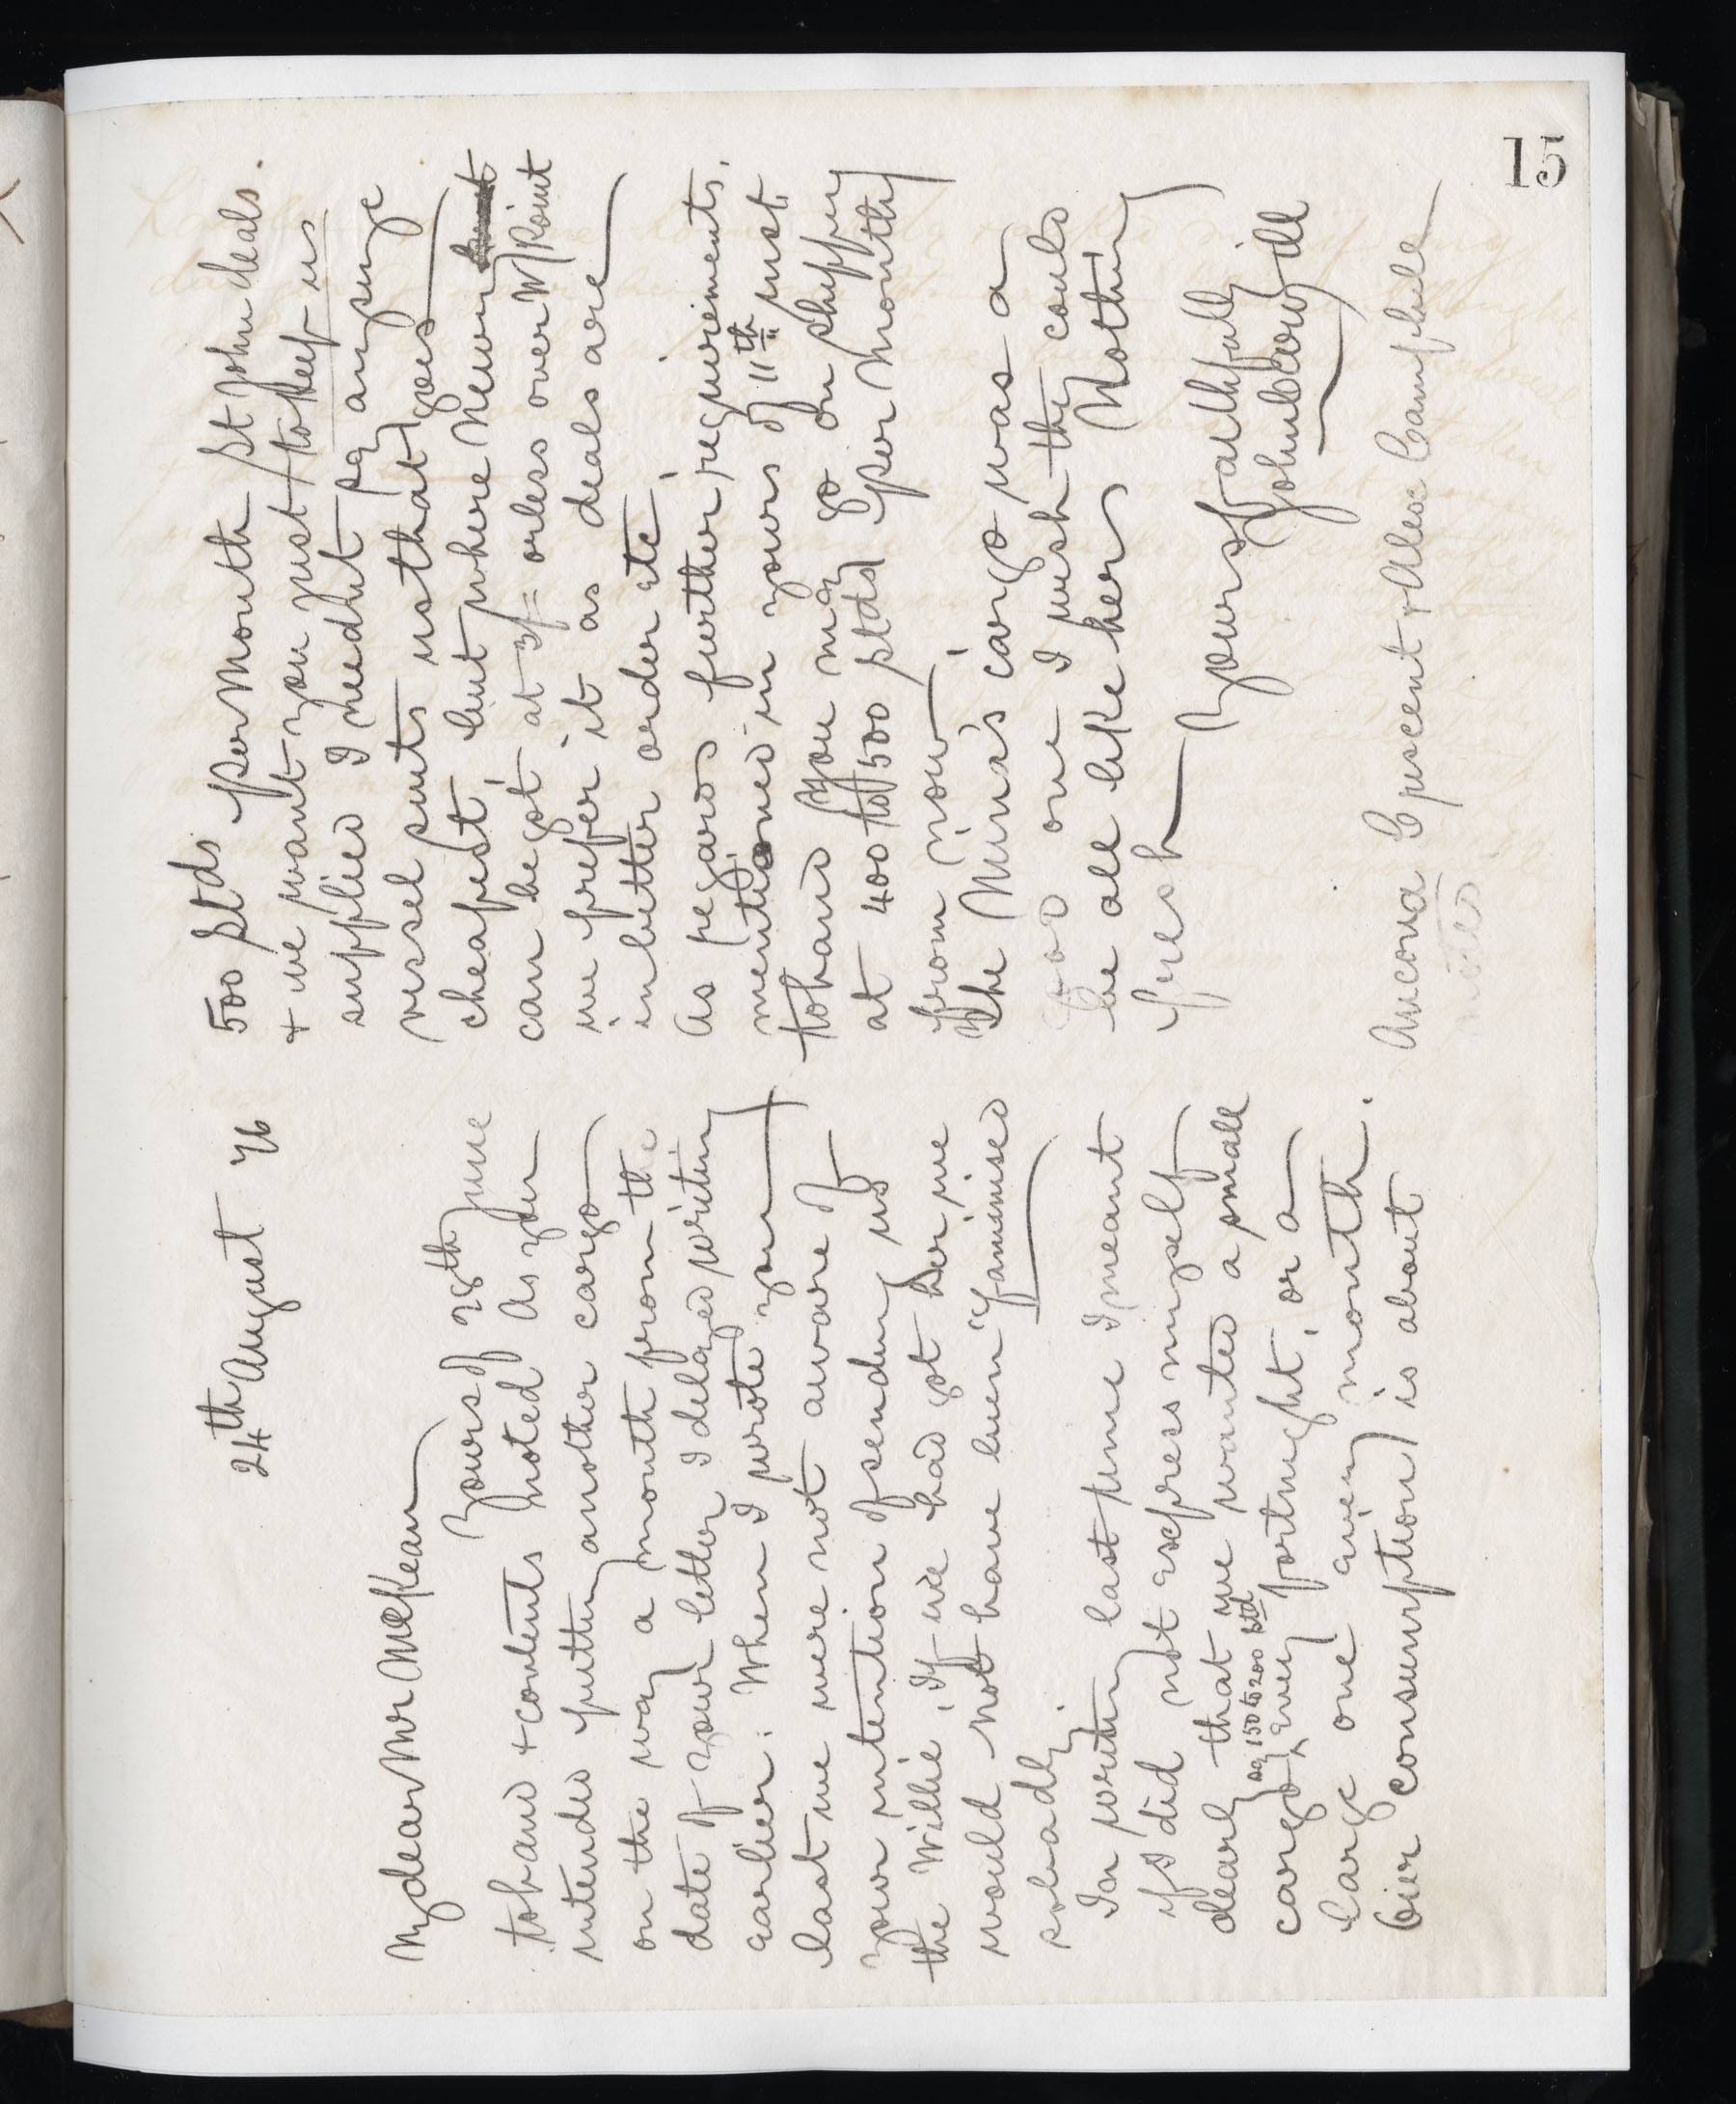 24th August 76
My dear Mr McKean
Yours of 28th June
to hand + contents noted As you
intended putting another cargo
on the way a month from the
date of your letter I delayed writing
earlier. When I wrote you
last we were not aware of
your intention of sending us
the Willie, If we had got her we
would not have been "faminised
so badly.
In writing last time I meant
if I did not express myself
clearly that we wanted a small
say 150 to 200 Std
cargo ^ every fortnight, or a
large one every month.
Our consumption is about
500 Stds per Month St John deals.
+ we want you just to keep us
supplied I needn't say any size
vessel suits us that goes
cheapest, but where Newry
can be got at 3/- or less over W/Point
we prefer it as deals are
in better order etc,
As regards further requirements,
mentioned in yours of 11th inst,
to hand you may go on shipping
at 400 to 500 stds per Month
from now,
The Mina's cargo was a
good one I wish they could
be all like hers Nothing
fresh
Yours faithfully.
John
Ancona Crescent + Alex Campbell
notes
15